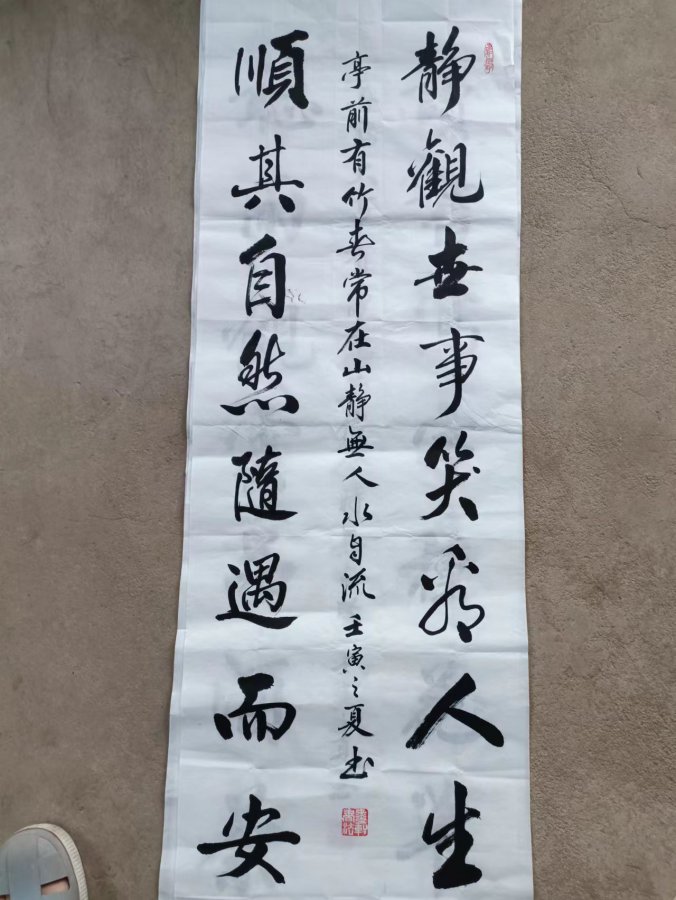 静觀世事笑看人生
亭前有竹春常在山静無人水自流壬寅之夏书
順其自然隨遇而安